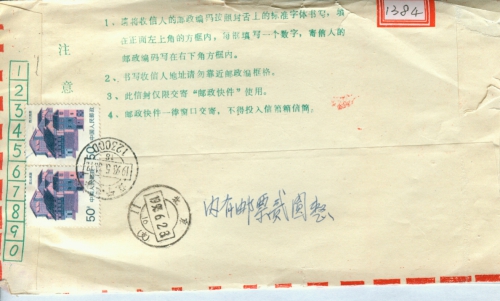 1384
注意
1、请将收信人的邮政编码按照封舌上的标准字体书写，填
在正面左上角的方框内，每框填写一个数字，寄信人的
邮政编码写在右下角方框内。
2、书写收信人地址请勿靠近邮政编框格。
3、此信封仅限交寄“邮政快件”使用。
4、邮政快件一律窗口交寄，不得投入信箱箱信筒。
1
2
3
4
5
6
7
8
9
0
50
中国人民邮政
50
中国人民邮政
内有邮票贰圆整